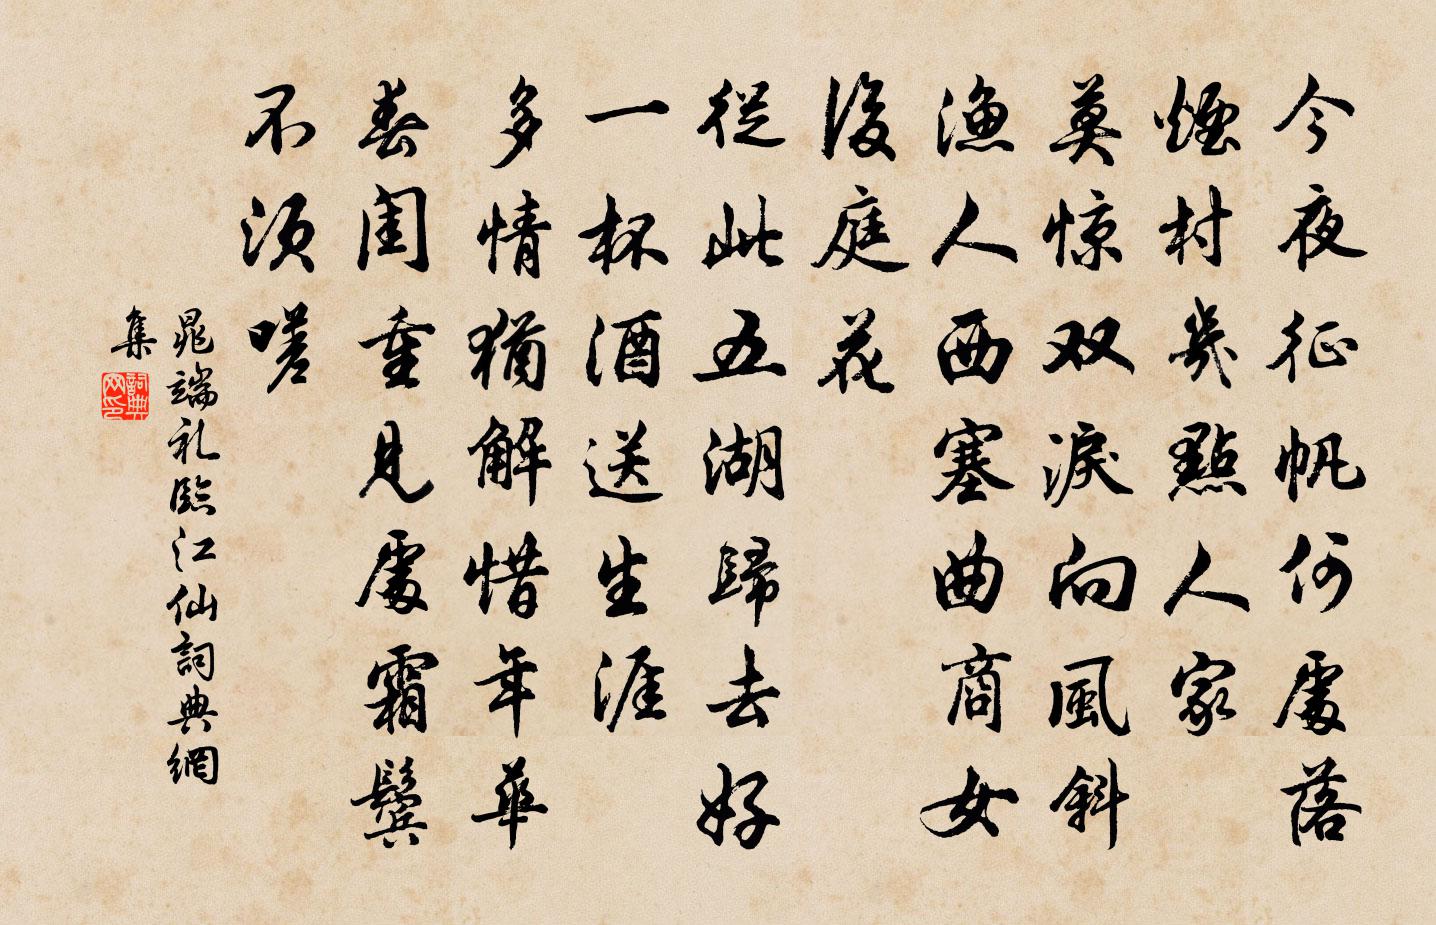 今夜征帆何處落
煙村幾點人家
莫惊双淚向風斜
漁人西塞曲商女
後庭花
從此五湖歸去好
一杯酒送生涯
多情猶解惜年華
春閨重見處霜鬢
不須嗟
晁端礼臨江仙詞典網
集
詞典
网印